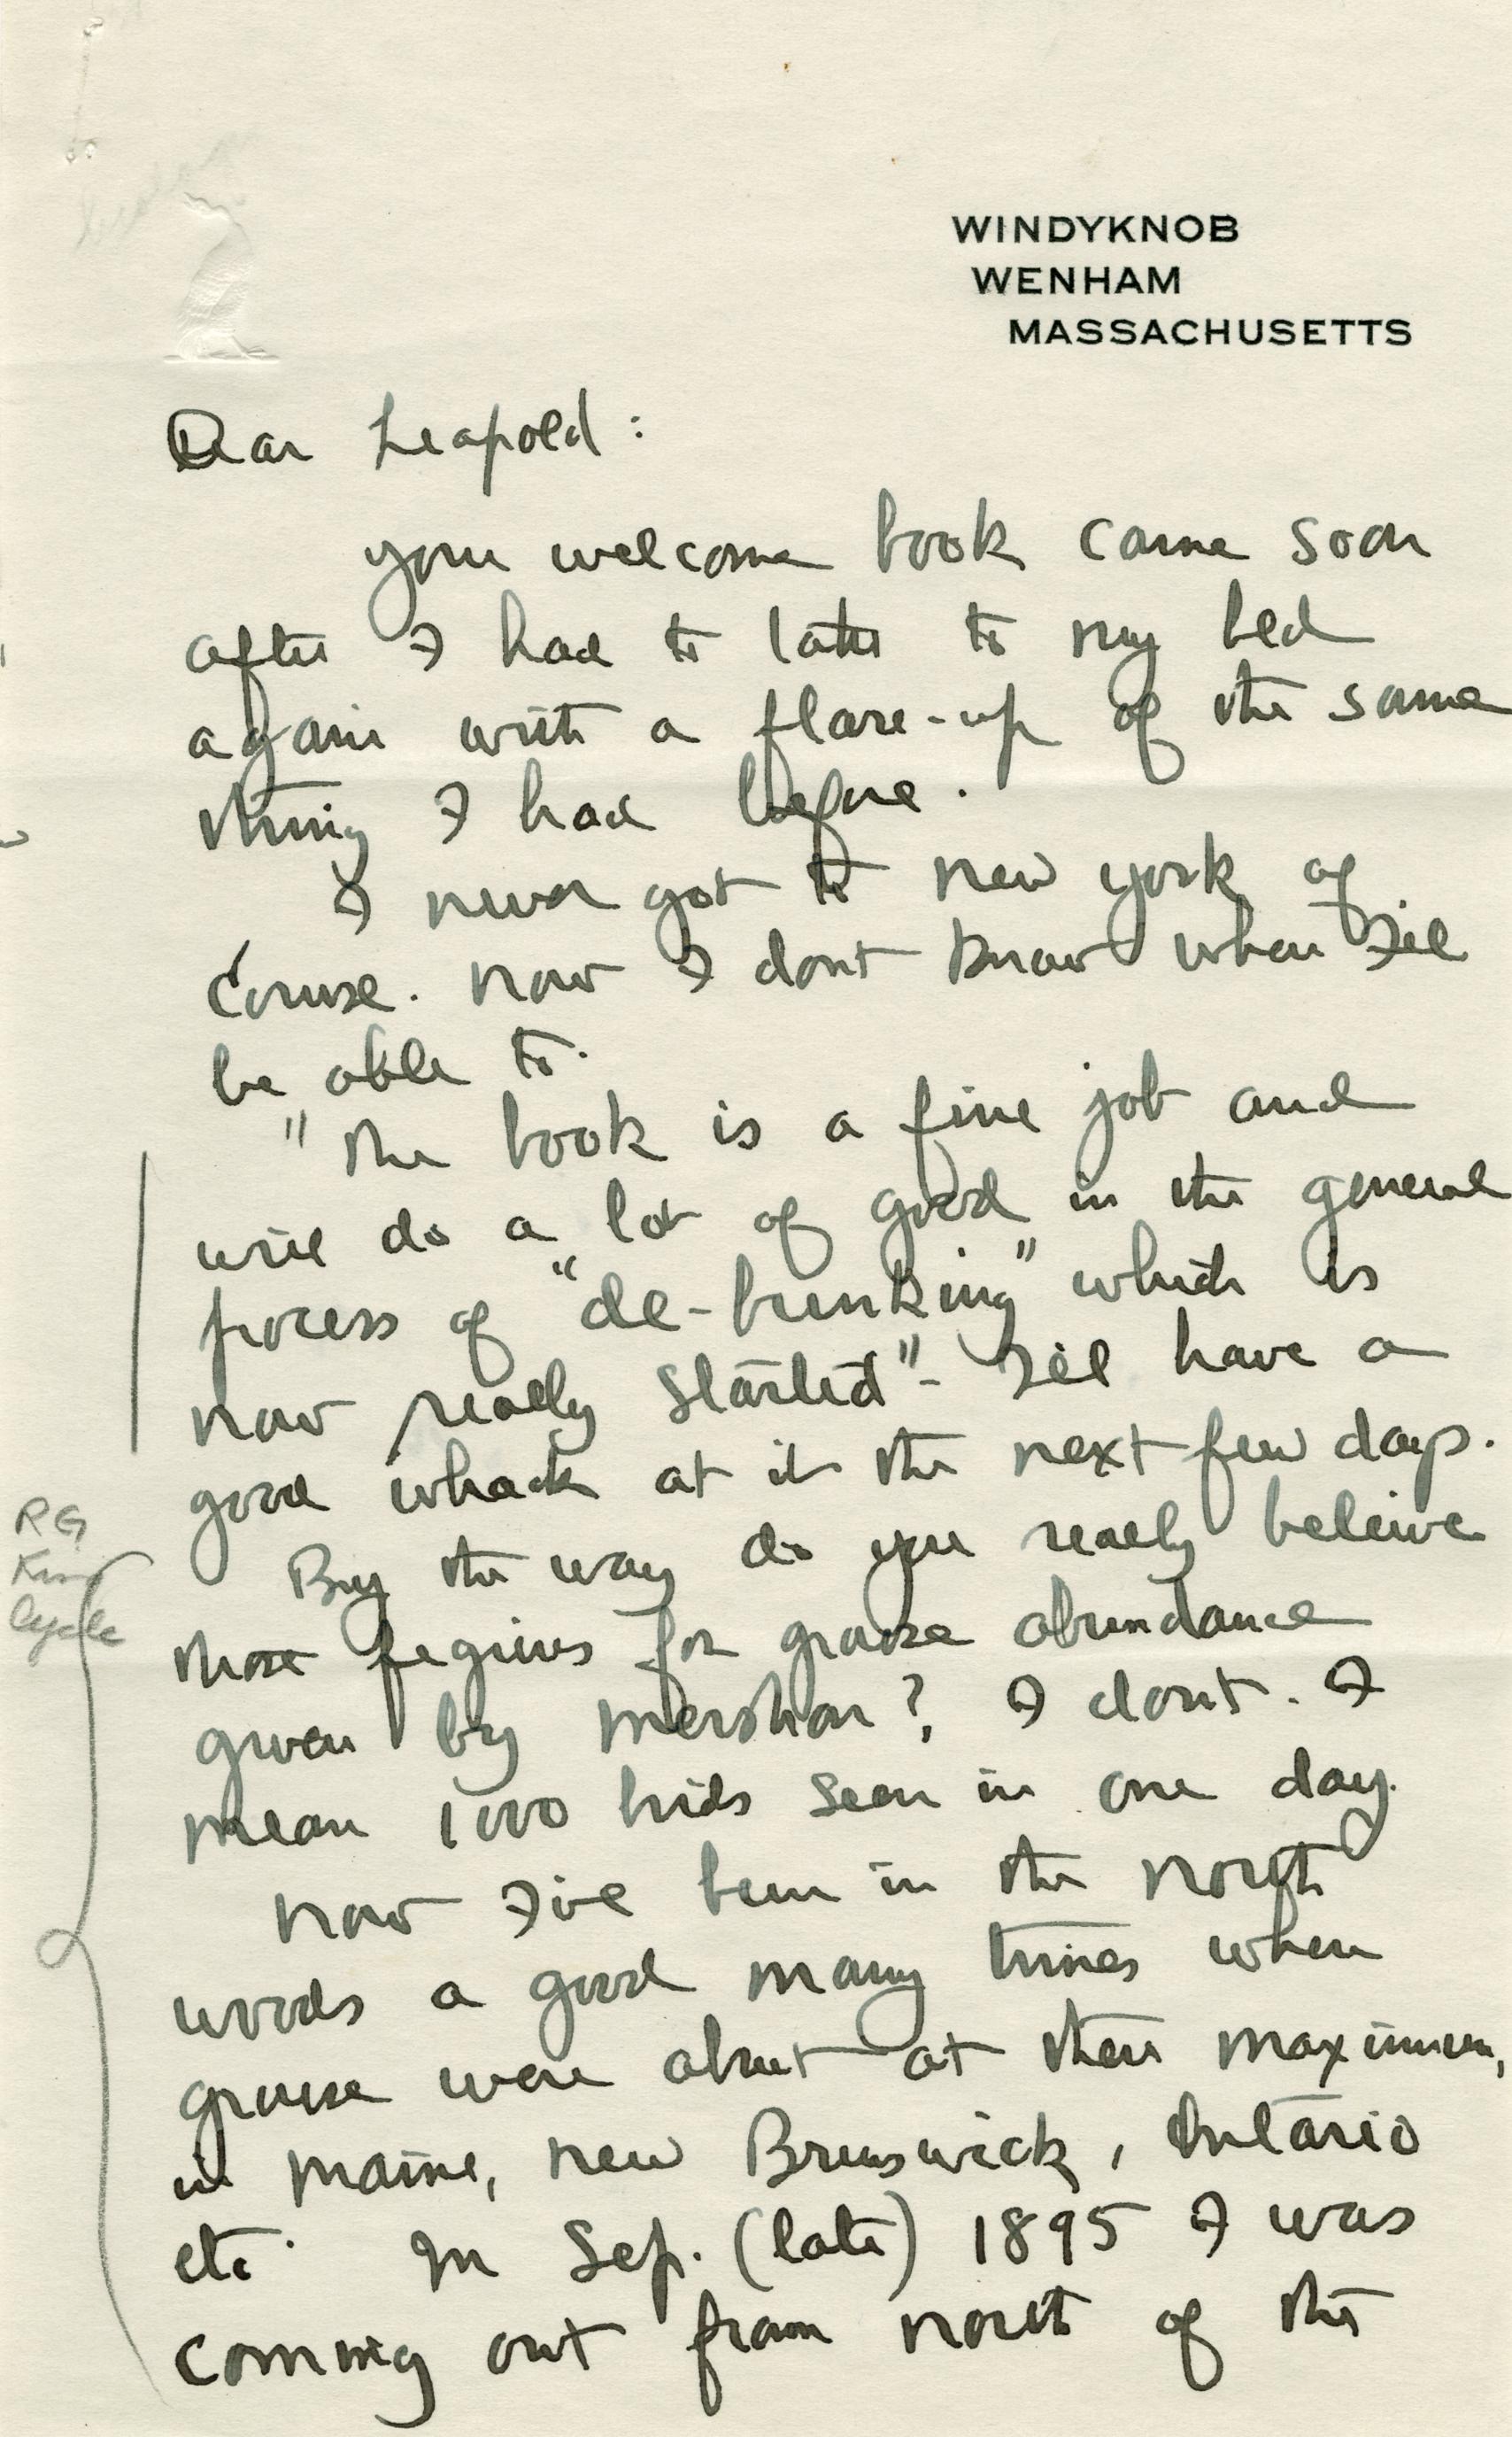 WINDYKNOB
WENHAM
MASSACHUSETTS
Dear Leopold:
your welcome book came soon
after I had to take to my bed
again with a flare-up of the same
thing I had before.
I never got to New York of
course. Now I dont know when I'll
be able to.
"The book is a fine job and
will do a lot of good in the general
process of "de-bunking" which is
now really started" - I'll have a
good whack at it the next few days.
RG
Cycle
By the way do you really beleive
those figures for grouse abundance
given by Mershon? I dont. I
mean 1000 birds seen in one day.
Now I've been in the north
woods a good many times when
grouse were about at their maximum,
in Maine, New Brunswick, Ontario
etc. In Sep. (late) 1895 I was
coming out from north of the